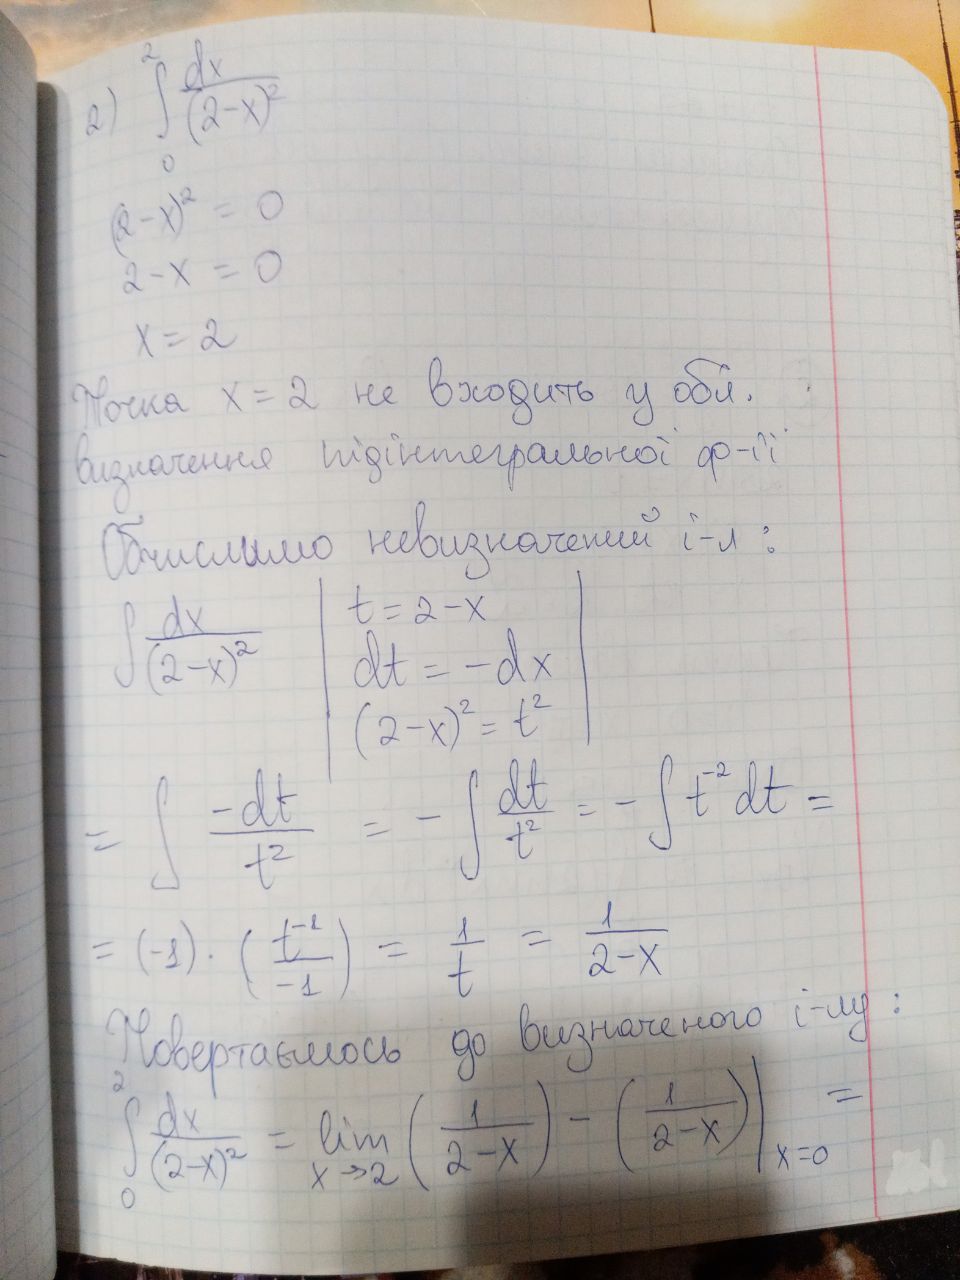 2) ∫₀² dx/(2-x)²
(2-x)² = 0
2-x = 0
x = 2
Точка x = 2 не входить у обл.
визначення підінтегральної ф-ії
Обчислимо невизначений і-л:
∫ dx/(2-x)² | t = 2-x
dt = -dx
(2-x)² = t² |
= ∫ -dt/t² = - ∫ dt/t² = - ∫ t⁻² dt =
= (-1) · (t⁻¹/-1) = 1/t = 1/(2-x)
Повертаємось до визначеного і-лу:
∫₀² dx/(2-x)² = lim x→2 (1/(2-x)) - (1/(2-x))|x=0 =